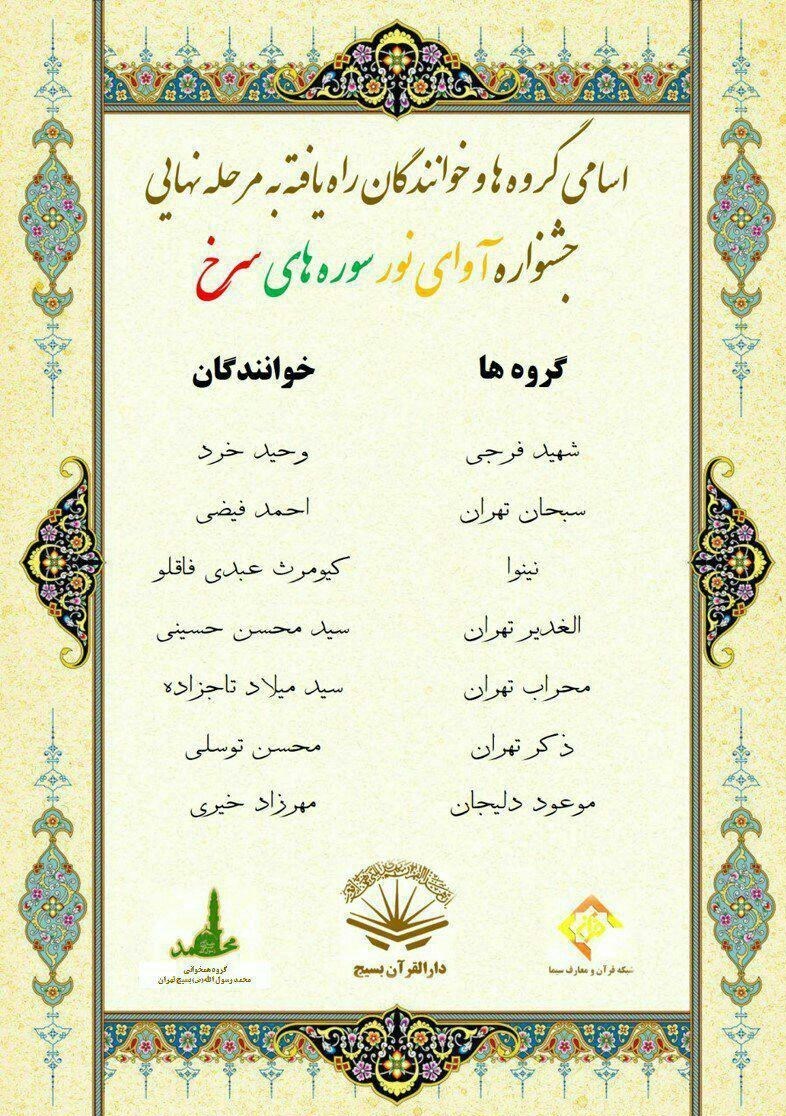 اسامی گروه ها و خوانندگان راه یافته به مرحله نهایی
جشنواره آوای نور سوره های سرخ
گروه ها
شهید فرجی
سبحان تهران
نینوا
الغدیر تهران
محراب تهران
ذکر تهران
موعود دلیجان
خوانندگان
وحید خرد
احمد فیضی
کیومرث عبدی فاقلو
سید محسن حسینی
سید میلاد تاجزاده
محسن توسلی
مهرزاد خیری
قرآن
شبکه قرآن و معارف سیما
دارالقرآن بسیج
محمد
گروه همخوانی
محمد رسول الله (ص) بسیج تهران